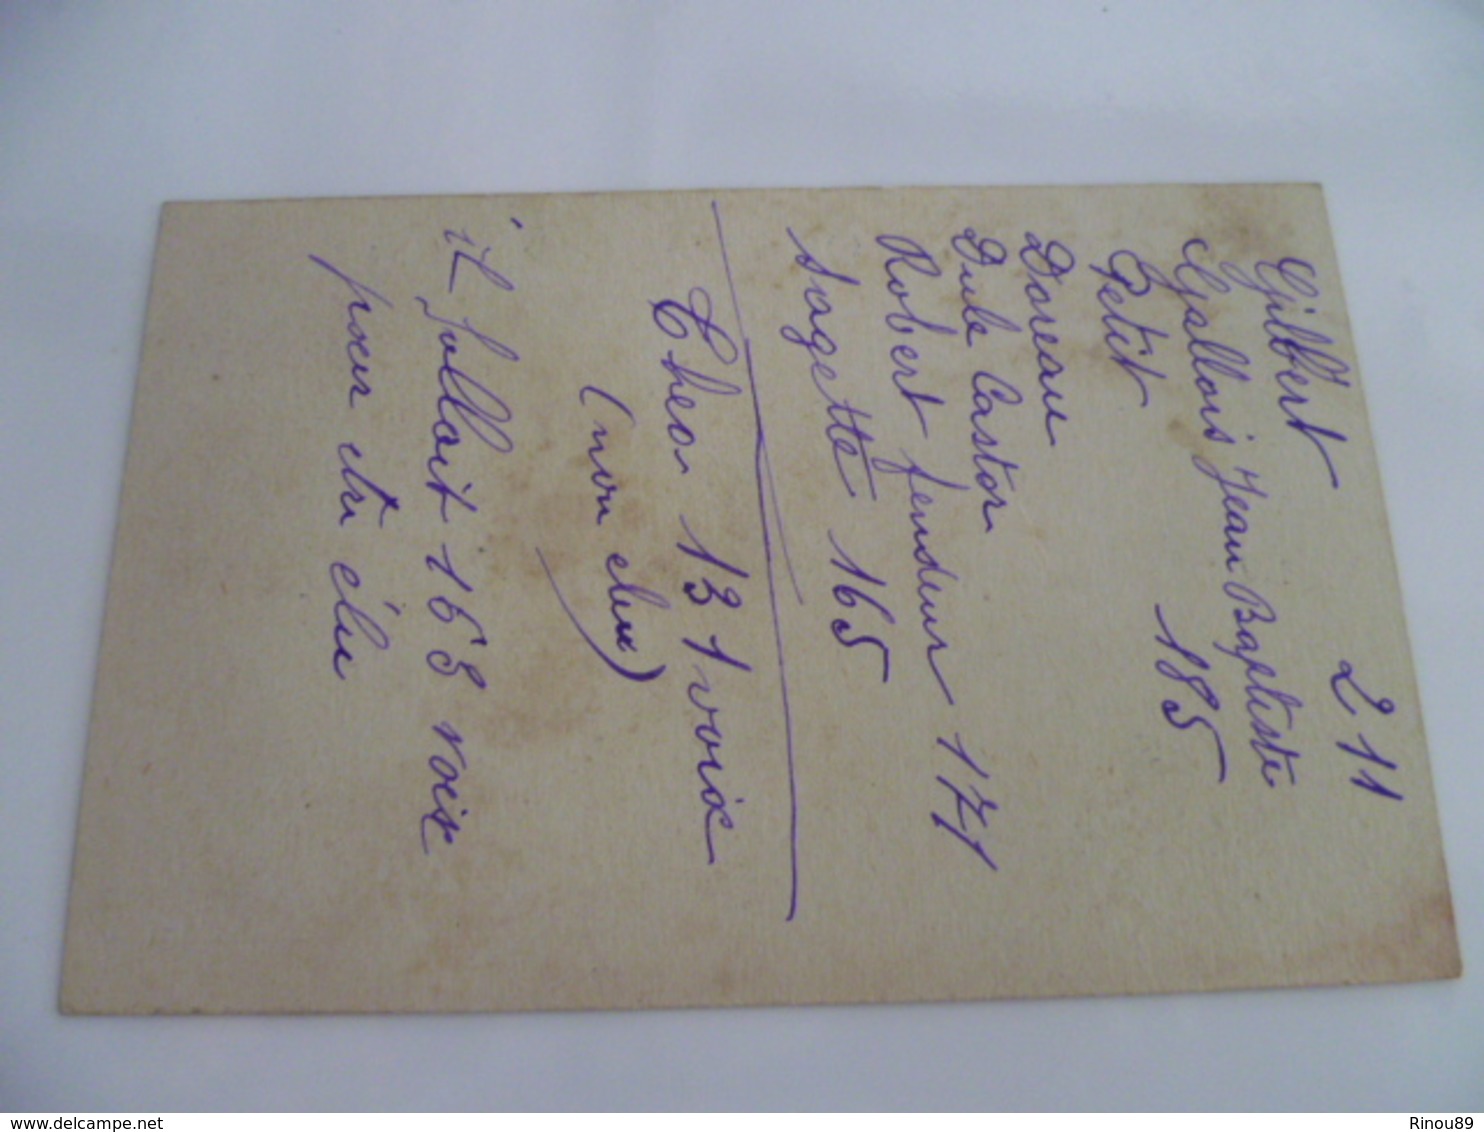 Gilbert 211
Gallois Jean Baptiste
Petit 185
Doreau
Dule Castor
Robert fendeur 171
Sagette 165
Cheo 131 voix
(non élu)
il fallait 163 voix
pour etre élu
www.delcampe.net
Rinou89